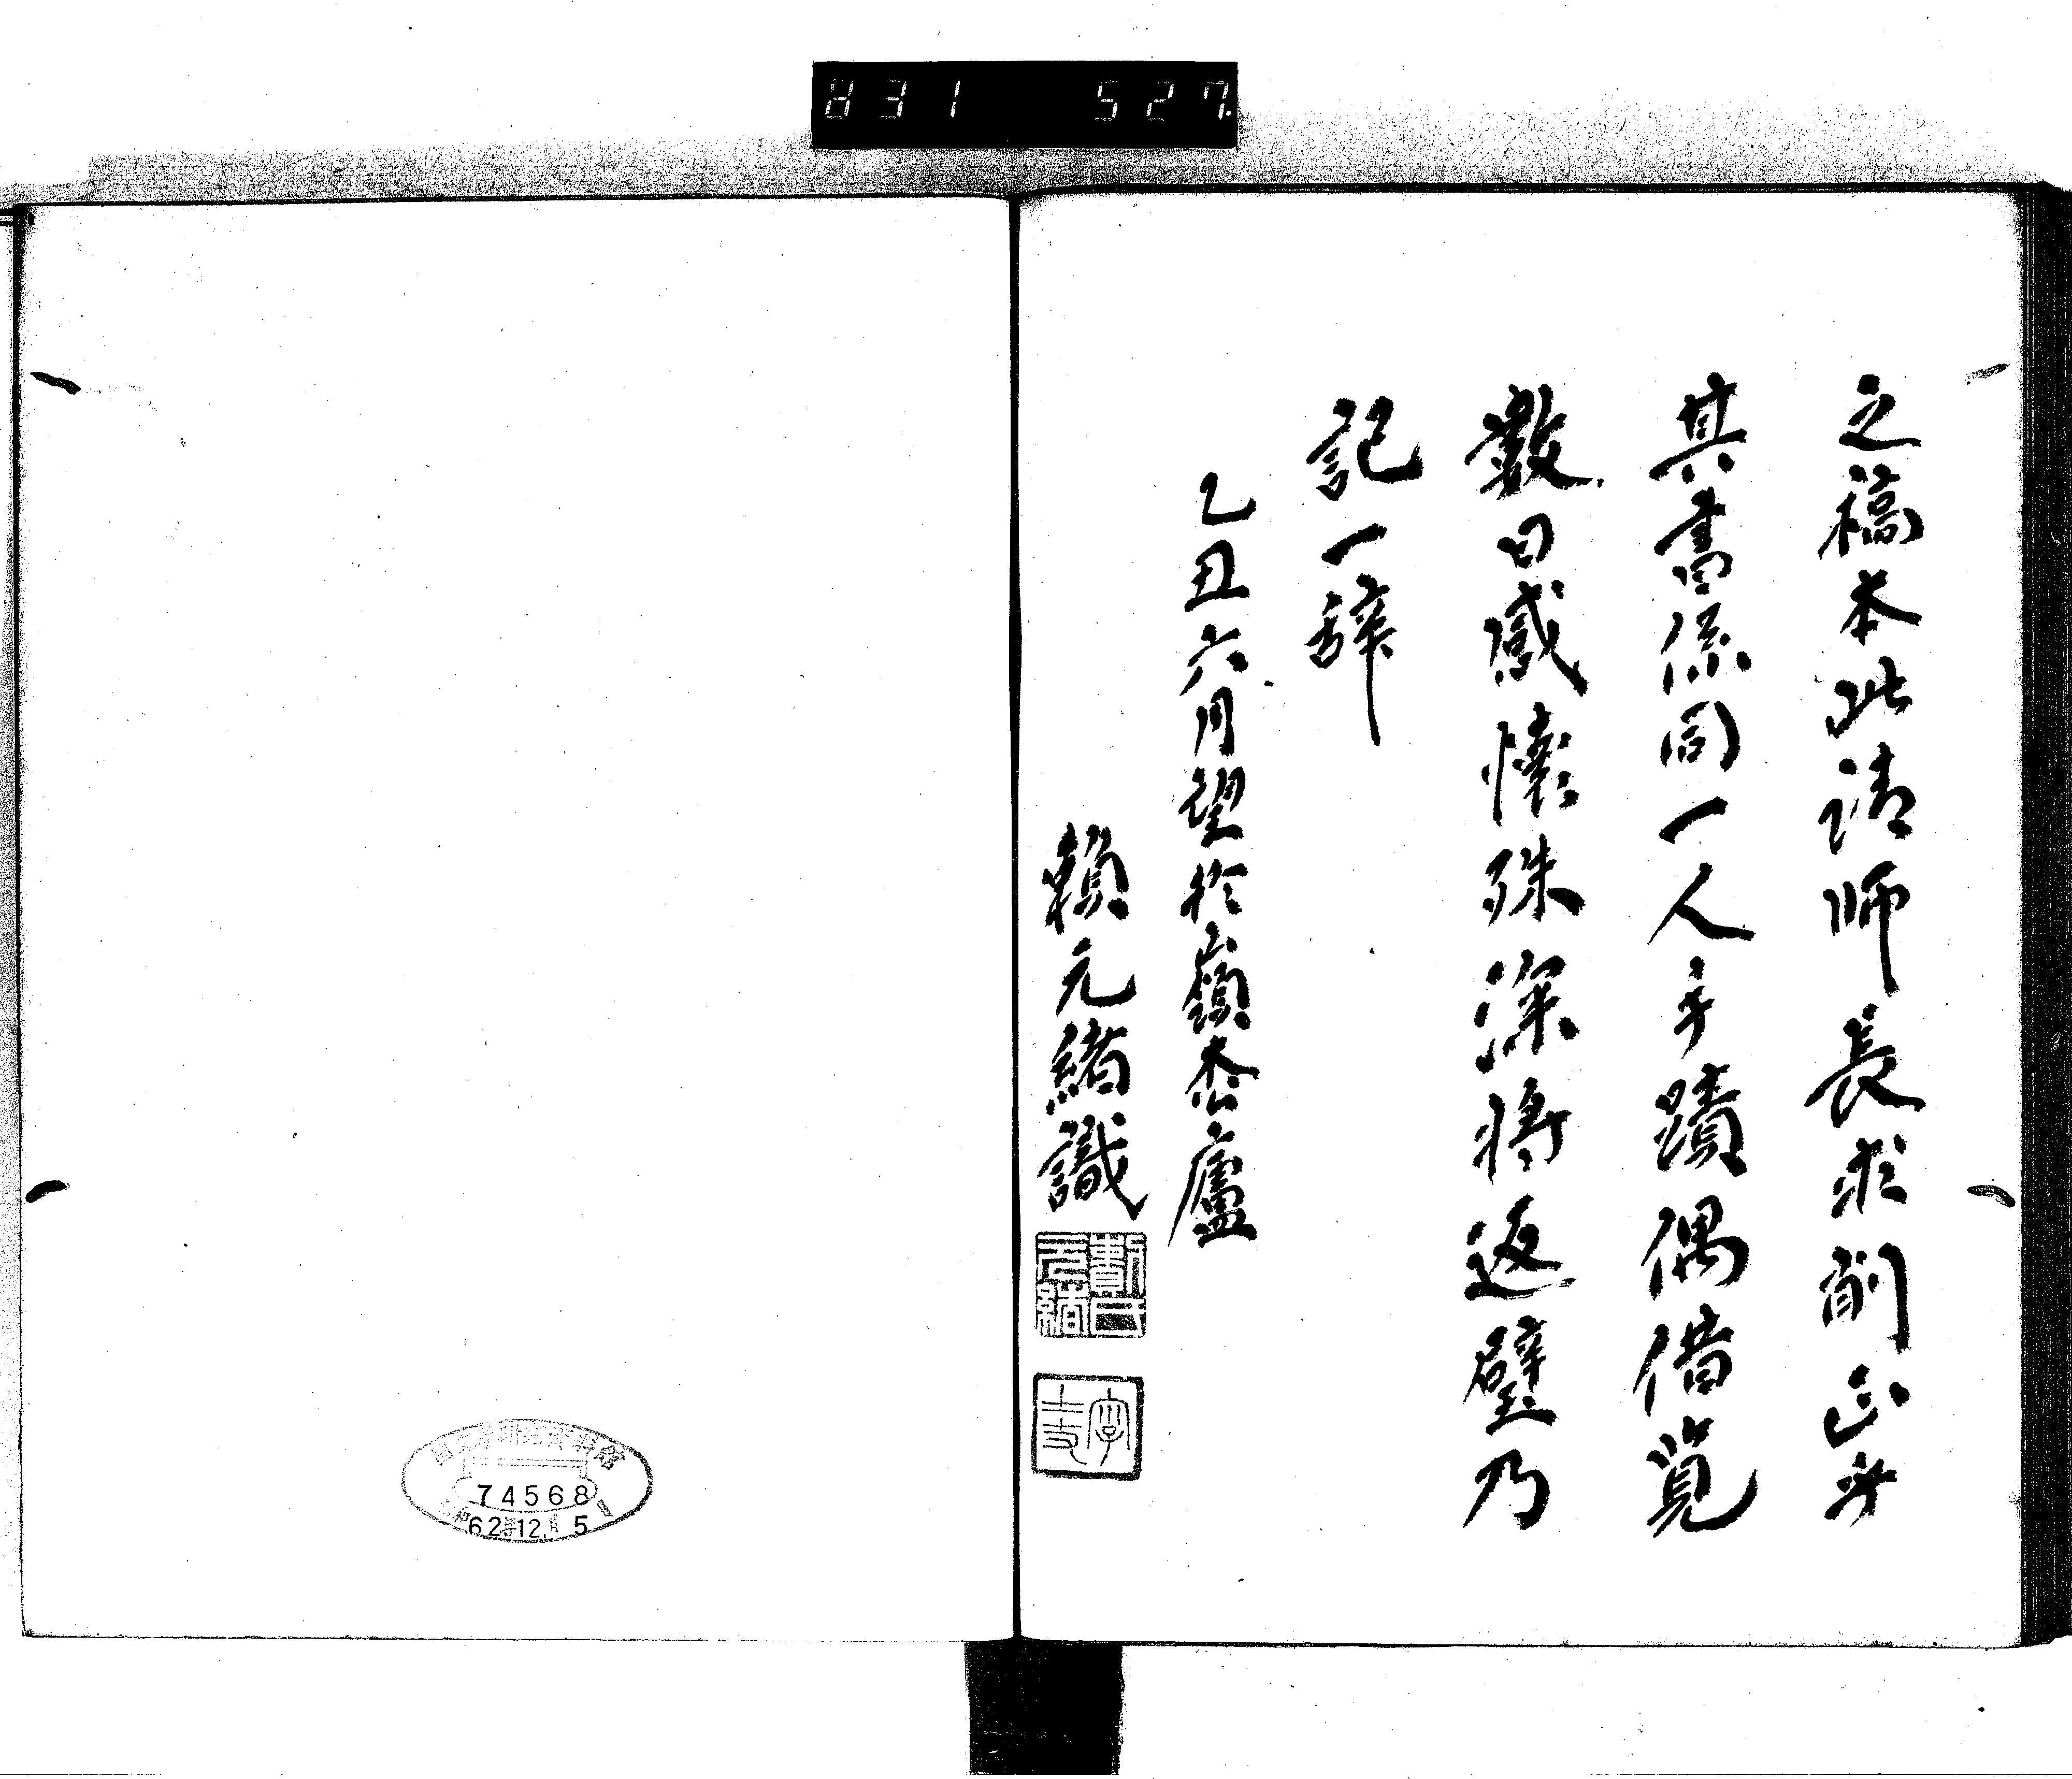 831 527
之稿本此請師長求削正者
其書係同一人手蹟偶借覧
數日感懷殊深将返璧乃
記一辞
乙丑六月望於嶺松廬
賴元緒識
元緒
74568
62.12. 5